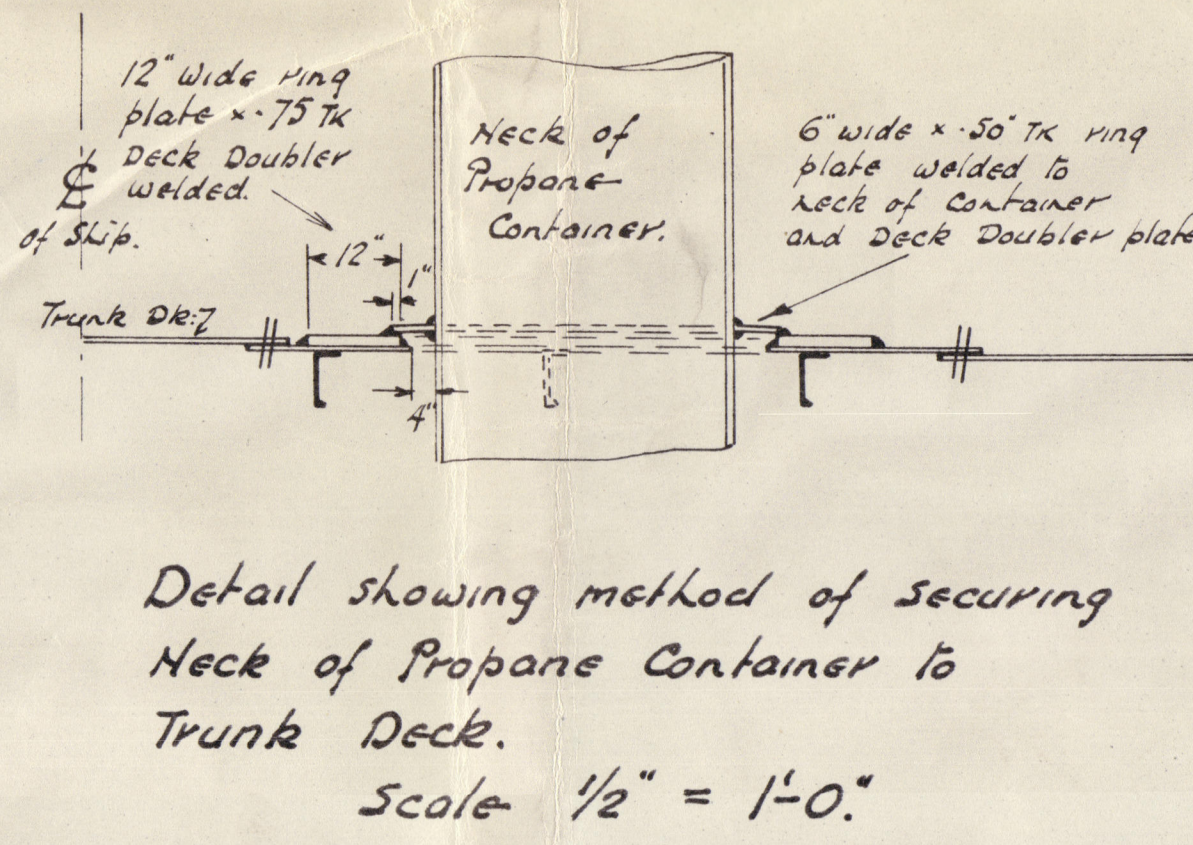 12" wide ring
plate × .75 TK
Deck Doubler
welded.
℄
of Ship.
Neck of
Propane
Container.
6" wide × .50" TK ring
plate welded to
neck of Container
and Deck Doubler plate
12"
1"
Trunk Dk:
4"
Detail showing method of securing
Neck of Propane Container to
Trunk Deck.
Scale 1/2" = 1'-0."